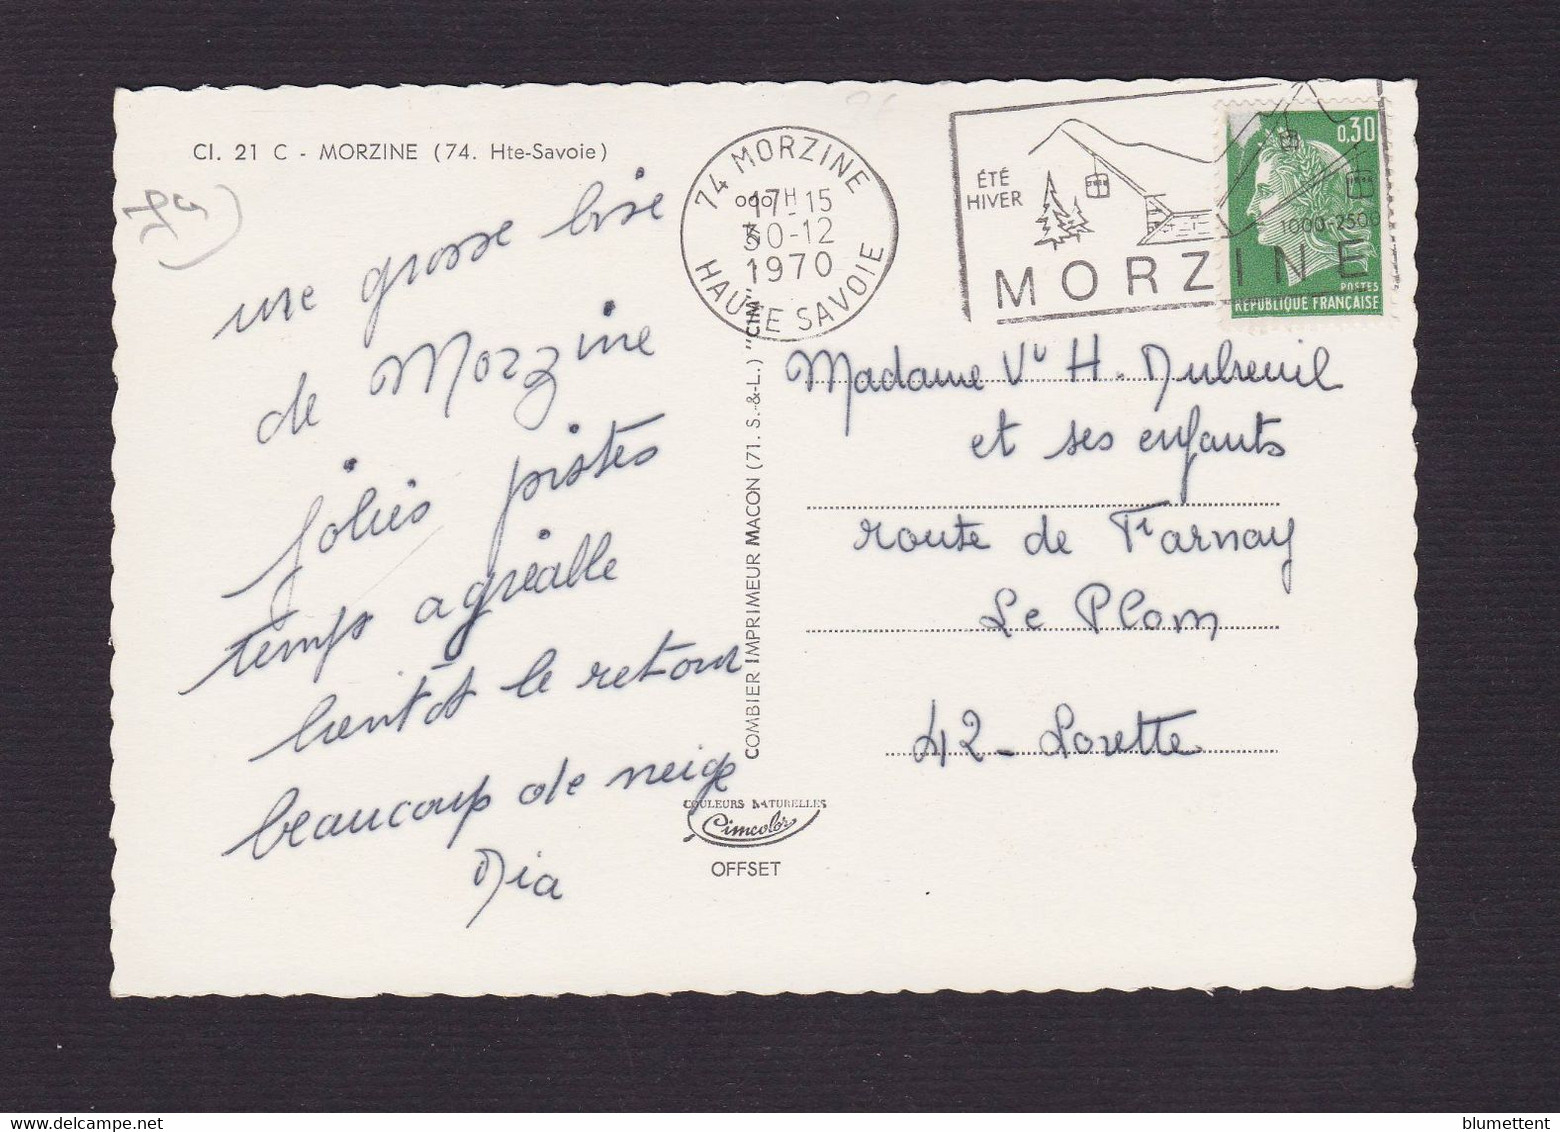 Cl. 21 C - MORZINE (74. Hte-Savoie)
une grosse bise
de Morzine
jolies pistes
temps agréable
bientôt le retour
beaucoup de neige
COMBIER IMPRIMEUR MACON (71. S.-&-L.) "CIM"
COULEURS NATURELLES
Cimcolor
OFFSET
74 MORZINE
17H15
30-12
1970
HAUTE SAVOIE
ÉTÉ
HIVER
1000-2500
MORZINE
0,30
POSTES
RÉPUBLIQUE FRANÇAISE
Madame Vve H. Dubreuil
et ses enfants
route de Farnay
Le Plom
42 - Lorette
blumettent